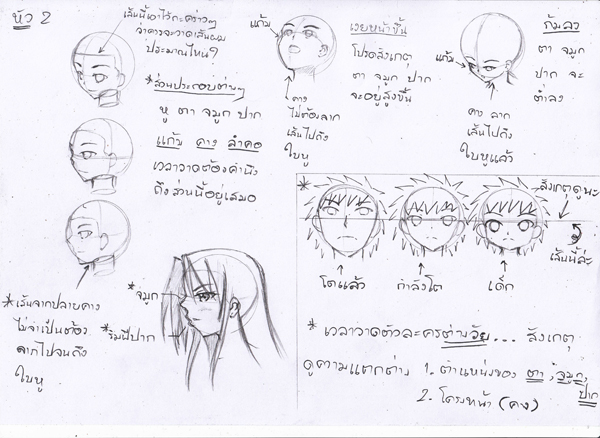 หัว 2
เส้นนี้เอาไว้กะคร่าวๆ
ว่าควรจะวาดเส้นผม
ประมาณไหน?
*ส่วนประกอบต่างๆ
หู ตา จมูก ปาก
แก้ม คาง ลำคอ
เวลาวาดต้องคำนึง
ถึงส่วนนี้อยู่เสมอ
แก้ม
คาง
ไม่ต้องลาก
เส้นไปถึง
ใบหู
เงยหน้าขึ้น
โปรดสังเกต
ตา จมูก ปาก
จะอยู่สูงขึ้น
แก้ม
คาง ลาก
เส้นไปถึง
ใบหูแล้ว
ก้มลง
ตา จมูก
ปาก จะ
ต่ำลง
*เส้นจากปลายคาง
ไม่จำเป็นต้อง
ลากไปจนถึง
ใบหู
*จมูก
*ริมฝีปาก
*
สังเกตดูนะ
เส้นนี้ล่ะ
โตแล้ว
กำลังโต
เด็ก
* เวลาวาดตัวละครต่างวัย... สังเกตุ
ดูความแตกต่าง 1. ตำแหน่งของ ตา, จมูก, ปาก
2. โครงหน้า (คาง)